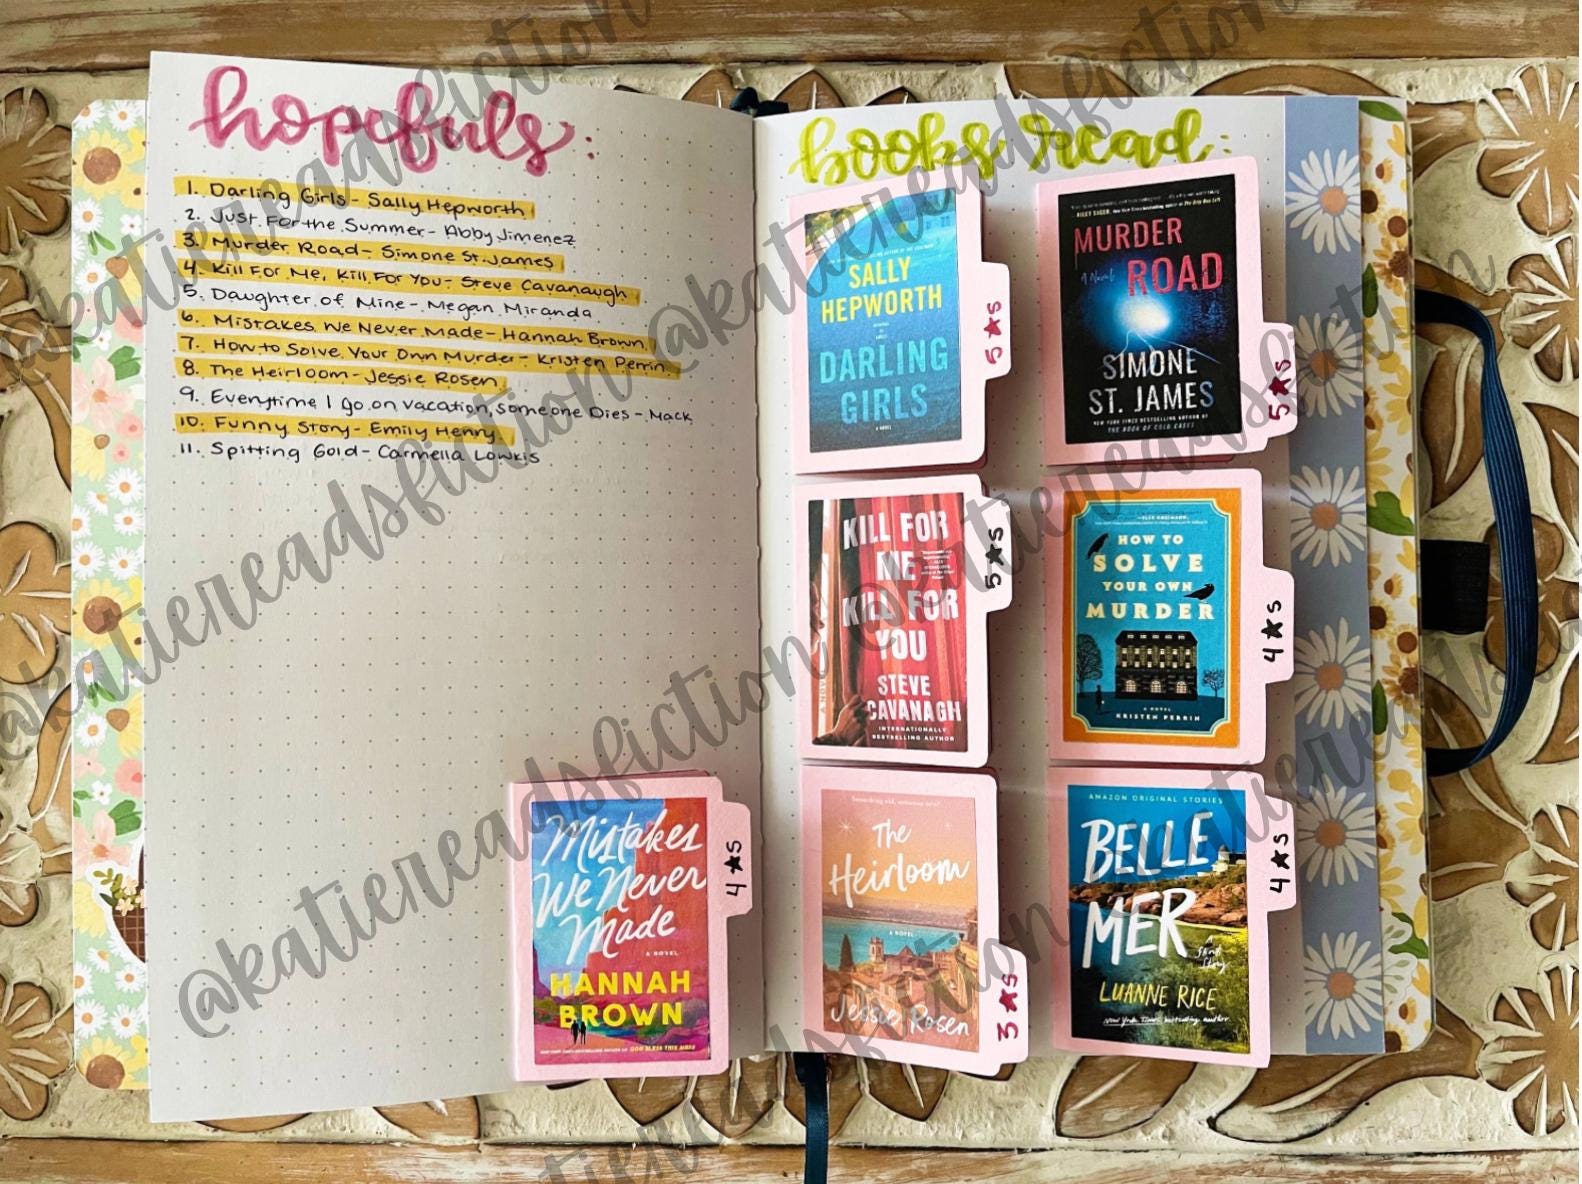 hopefuls:
1. Darling Girls - Sally Hepworth
2. Just For the Summer - Abby Jimenez
3. Murder Road - Simone St. James
4. Kill For Me, Kill For You - Steve Cavanaugh
5. Daughter of Mine - Megan Miranda
6. Mistakes We Never Made - Hannah Brown
7. How to Solve Your Own Murder - Kristen Perrin
8. The Heirloom - Jessie Rosen
9. Everytime I go on vacation, someone Dies - Mack
10. Funny Story - Emily Henry
11. Spitting Gold - Carmella Lowkis
Mistakes
We Never
Made
A NOVEL
HANNAH
BROWN
4 ★s
books read:
SALLY
HEPWORTH
DARLING
GIRLS
A NOVEL
5 ★s
MURDER
ROAD
A Novel
SIMONE
ST. JAMES
NEW YORK TIMES BESTSELLING AUTHOR OF
THE BOOK OF COLD CASES
5 ★s
KILL FOR
ME
KILL FOR
YOU
STEVE
CAVANAGH
INTERNATIONALLY
BESTSELLING AUTHOR
5 ★s
HOW TO
SOLVE
YOUR OWN
MURDER
A NOVEL
KRISTEN PERRIN
4 ★s
The
Heirloom
A NOVEL
Jessie Rosen
3 ★s
AMAZON ORIGINAL STORIES
BELLE
MER
A
Short
Story
LUANNE RICE
New York Times bestselling author
4 ★s
@katiereadsfiction
@katiereadsfiction
@katiereadsfiction
@katiereadsfiction